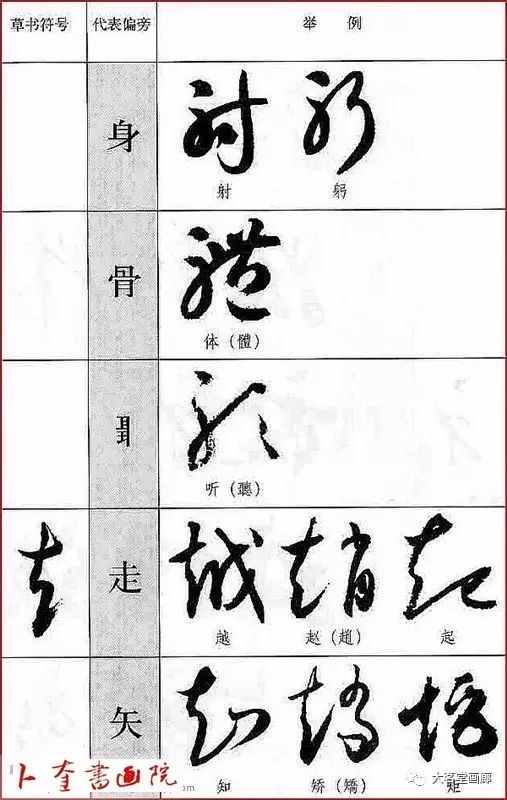 草书符号 代表偏旁 举例
身
射 躬
骨
体（體）
听（聽）
走
越 赵（趙） 起
矢
知 矫（矯） 矩
卜奎書画院
大茗堂画廊